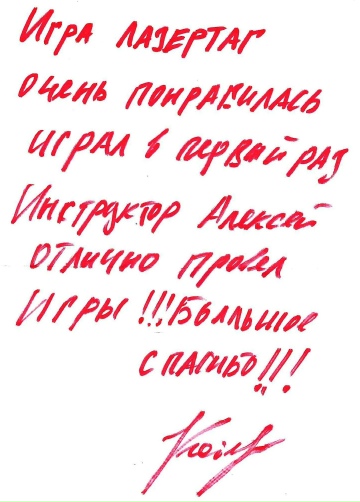 Игра лазертаг
очень понравилась
играл в первый раз
Инструктор Алексей
отлично провел
Игры !!! Большое
спасибо!!!